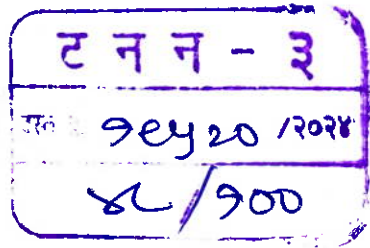 ट न न - ३
दस्त १९५२० /२०२४
४८/१००